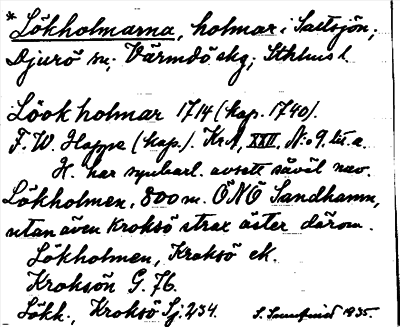 * Lökholmarna, holmar i Saltsjön,
Djurö sn, Värmdö skg, Sthlms l.
Löökholmar 1714 (kop. 1740).
F. W. Hoppe (kop.). KrA, XXII, N:o 9 lit. a.
H. har synbarl. avsett såväl nuv.
Lökholmen, 800 m. ÖNÖ Sandhamn,
utan även Kroksö strax öster därom.
Lökholmen, Kroksö ek.
Kroksön G. 76.
Lökh., Kroksö Sj. 234.
1935.